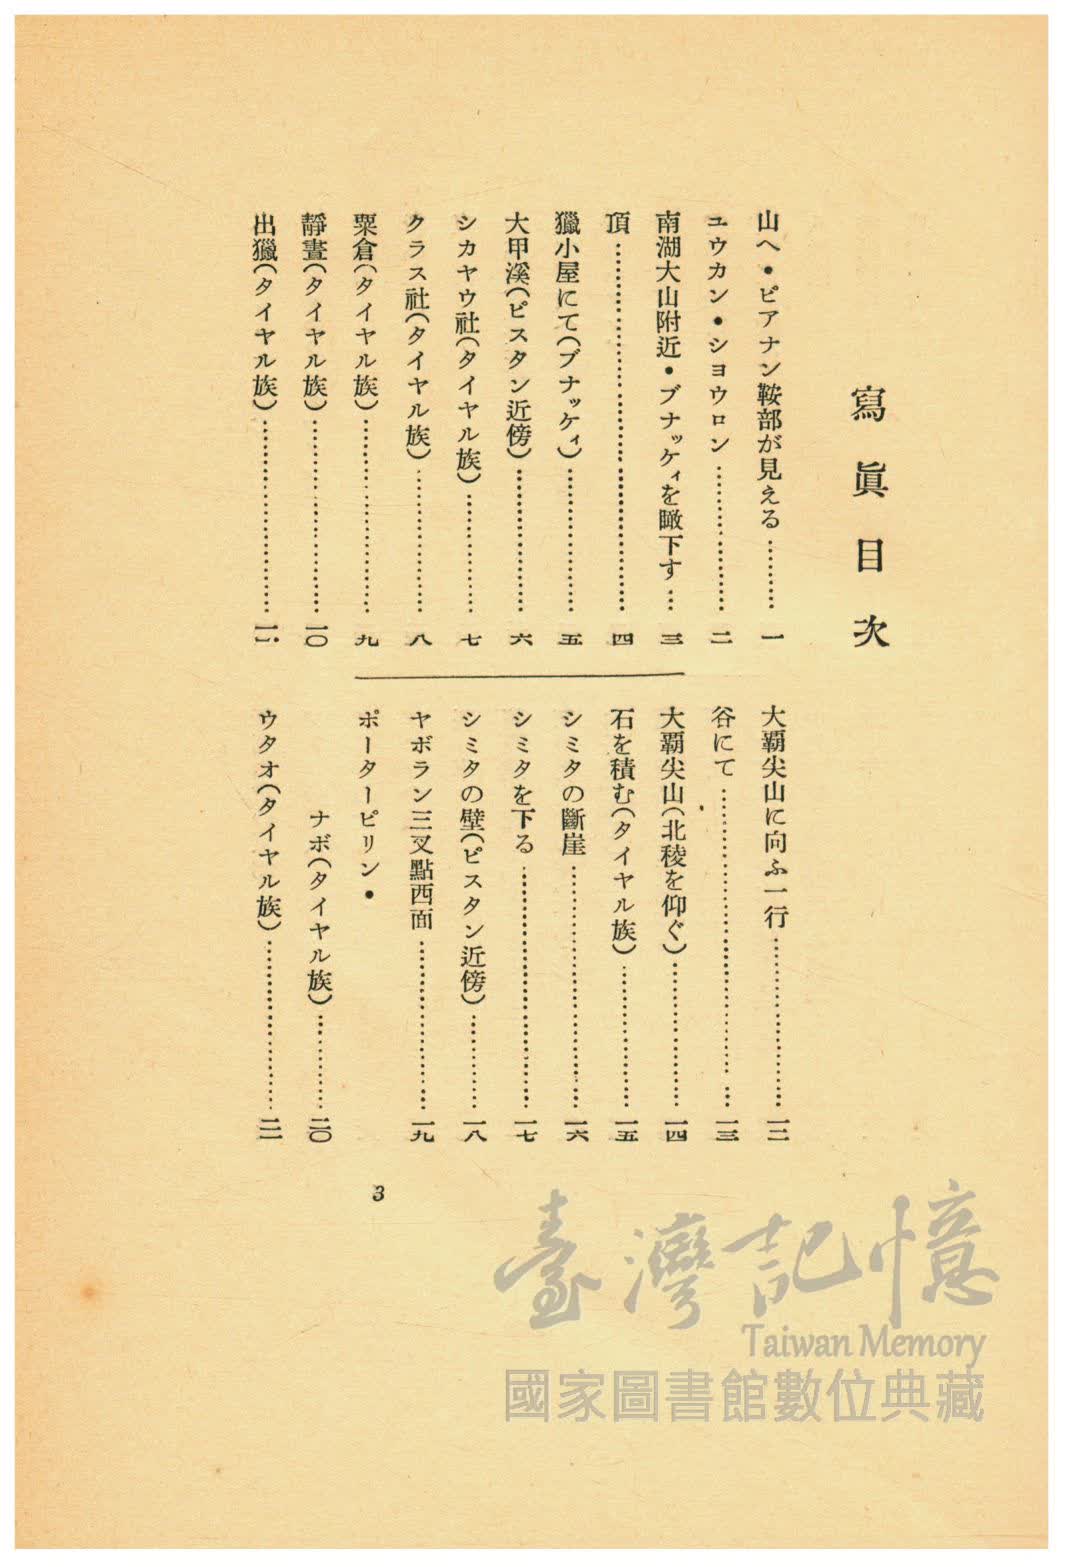 寫眞目次
山へ・ピアナン鞍部が見える…………一
ユウカン・シヨウロン…………二
南湖大山附近・ブナッケィを瞰下す…三
頂…………四
獵小屋にて(ブナッケィ)…………五
大甲溪(ピスタン近傍)…………六
シカヤウ社(タイヤル族)…………七
クラス社(タイヤル族)…………八
粟倉(タイヤル族)…………九
靜晝(タイヤル族)…………一〇
出獵(タイヤル族)…………一一
大覇尖山に向ふ一行…………一二
谷にて…………一三
大覇尖山(北稜を仰ぐ)…………一四
石を積む(タイヤル族)…………一五
シミタの斷崖…………一六
シミタを下る…………一七
シミタの壁(ピスタン近傍)…………一八
ヤボラン三叉點西面…………一九
ポーターピリン・
ナボ(タイヤル族)…………二〇
ウタオ(タイヤル族)…………二一
3
臺灣記憶
Taiwan Memory
國家圖書館數位典藏